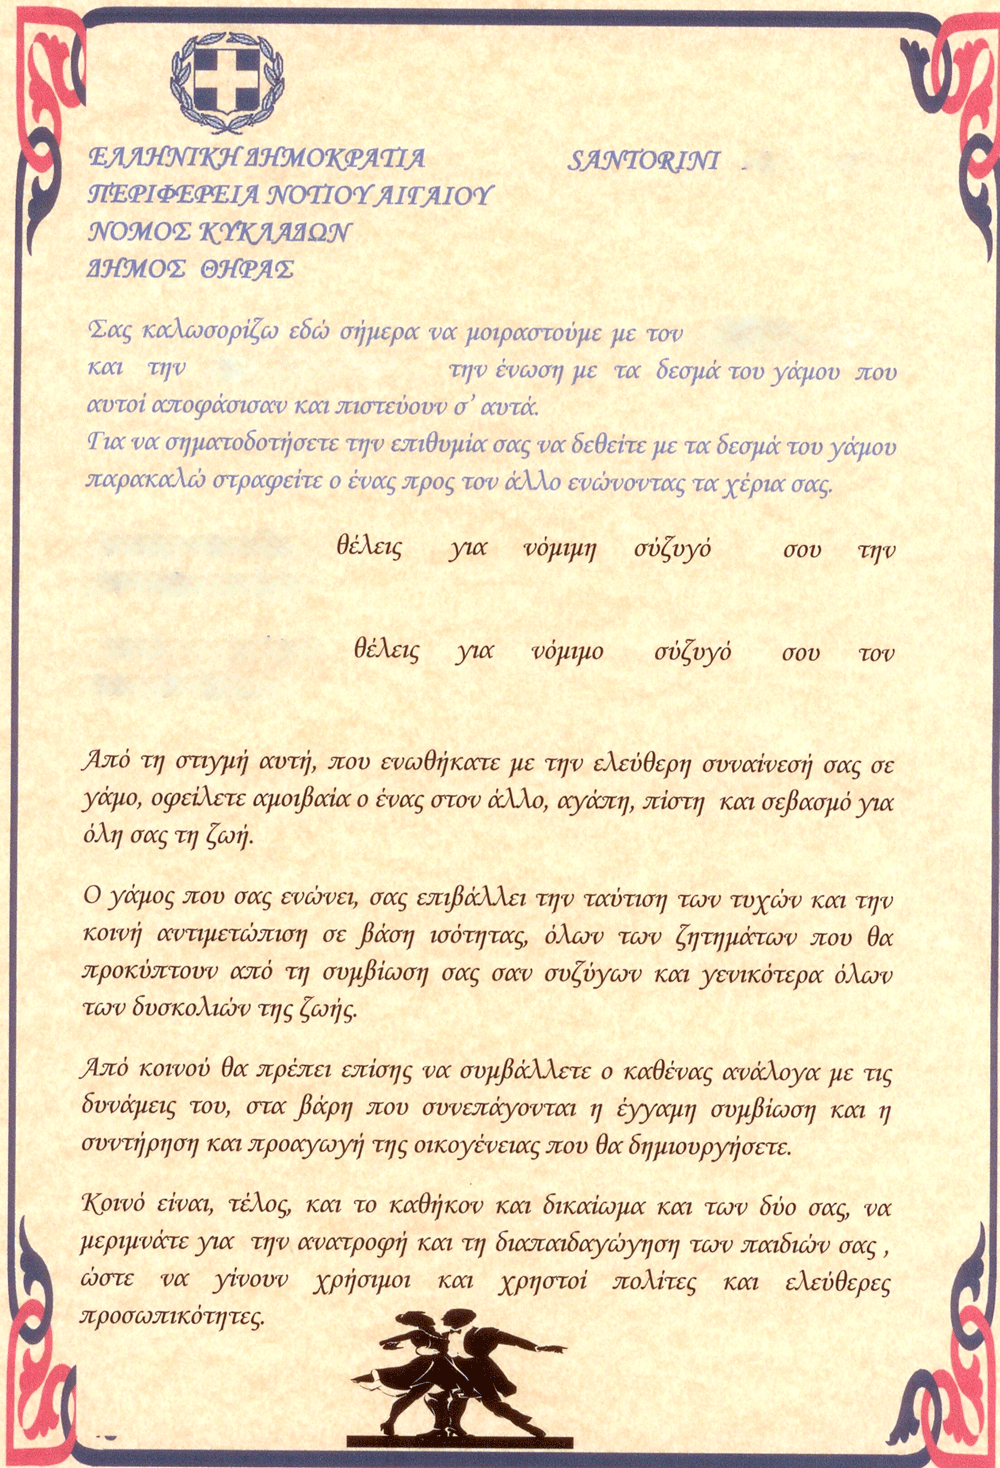 ΕΛΛΗΝΙΚΗ ΔΗΜΟΚΡΑΤΙΑ SANTORINI
ΠΕΡΙΦΕΡΕΙΑ ΝΟΤΙΟΥ ΑΙΓΑΙΟΥ
ΝΟΜΟΣ ΚΥΚΛΑΔΩΝ
ΔΗΜΟΣ ΘΗΡΑΣ
Σας καλωσορίζω εδώ σήμερα να μοιραστούμε με τον
και την την ένωση με τα δεσμά του γάμου που
αυτοί αποφάσισαν και πιστεύουν σ' αυτά.
Για να σηματοδοτήσετε την επιθυμία σας να δεθείτε με τα δεσμά του γάμου
παρακαλώ στραφείτε ο ένας προς τον άλλο ενώνοντας τα χέρια σας.
θέλεις για νόμιμη σύζυγό σου την
θέλεις για νόμιμο σύζυγό σου τον
Από τη στιγμή αυτή, που ενωθήκατε με την ελεύθερη συναίνεσή σας σε
γάμο, οφείλετε αμοιβαία ο ένας στον άλλο, αγάπη, πίστη και σεβασμό για
όλη σας τη ζωή.
Ο γάμος που σας ενώνει, σας επιβάλλει την ταύτιση των τυχών και την
κοινή αντιμετώπιση σε βάση ισότητας, όλων των ζητημάτων που θα
προκύπτουν από τη συμβίωση σας σαν συζύγων και γενικότερα όλων
των δυσκολιών της ζωής.
Από κοινού θα πρέπει επίσης να συμβάλλετε ο καθένας ανάλογα με τις
δυνάμεις του, στα βάρη που συνεπάγονται η έγγαμη συμβίωση και η
συντήρηση και προαγωγή της οικογένειας που θα δημιουργήσετε.
Κοινό είναι, τέλος, και το καθήκον και δικαίωμα και των δύο σας, να
μεριμνάτε για την ανατροφή και τη διαπαιδαγώγηση των παιδιών σας ,
ώστε να γίνουν χρήσιμοι και χρηστοί πολίτες και ελεύθερες
προσωπικότητες.